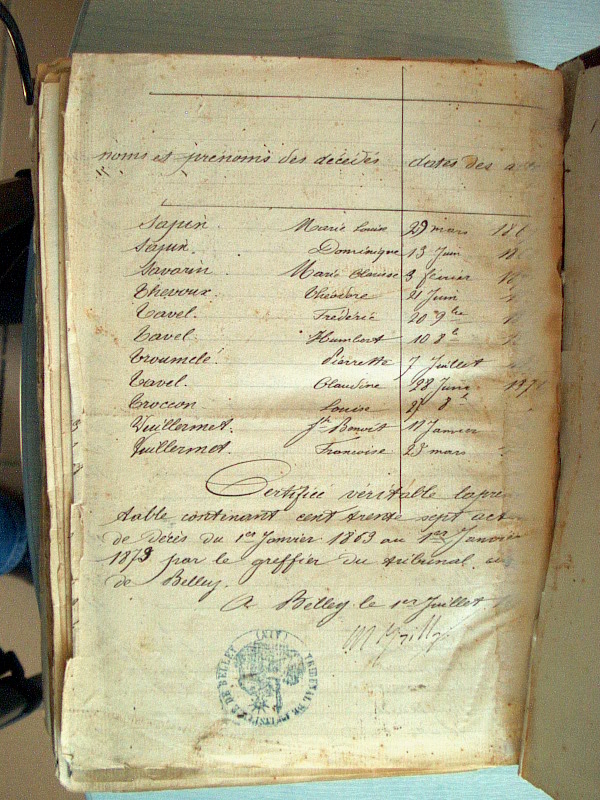 noms et prénoms des décédés dates des
Sapin. Marie Louise 29 mars
Sapin. Dominique 13 Juin
Savarin Marie Clarisse 3 février
Thevoux. Théodore 21 Juin
Tavel. Fréderic 20 9bre
Tavel. Humbert 10 8e
Troumclé. Pierrette 7 Juillet
Tavel. Claudine 28 Juin 187
Troccon Louise 27 8e
Vuillermet. Jh Benoit 11 Janvier
Vuillermet. Françoise 23 mars
Certifiée véritable la
table contenant cent trente sept
de décès du 1er Janvier 1863 au 1er Janvier
1873 par le greffier du tribunal
de Belley.
A Belley le 1er Juillet
TRIBUNAL DE 1ère INSTANCE DE BELLEY (AIN)